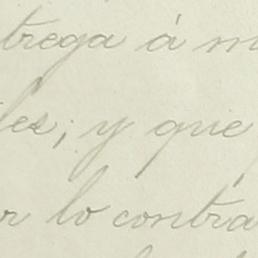 trega á m
les; y que
r lo contra